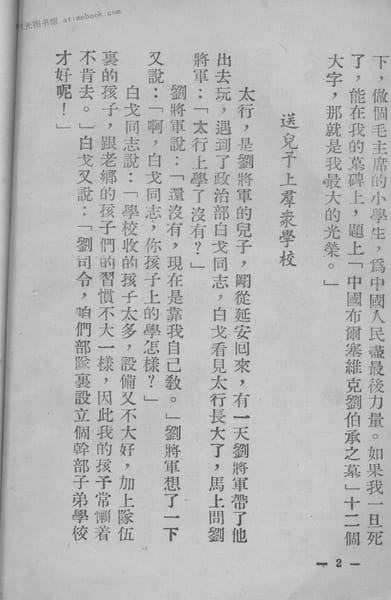 时光图书馆 atimebook.com
下，做個毛主席的小學生，爲中國人民盡最後力量。如果我一旦死
了，能在我的墓碑上，題上「中國布爾塞維克劉伯承之墓」十二個
大字，那就是我最大的光榮。」
送兒子上羣衆學校
太行，是劉將軍的兒子，剛從延安囘來，有一天劉將軍帶了他
出去玩，遇到了政治部白戈同志，白戈看見太行長大了，馬上問劉
將軍：「太行上學了沒有？」
劉將軍說：「還沒有，現在是靠我自己教。」劉將軍想了一下
又說：「啊，白戈同志，你孩子上的學怎樣？」
白戈同志說：「學校收的孩子太多，設備又不大好，加上隊伍
裏的孩子，跟老鄉的孩子們的習慣不大一樣，因此我的孩子常懶着
不肯去。」白戈又說：「劉司令，咱們部隊裏設立個幹部子弟學校
才好呢！」
— 2 —